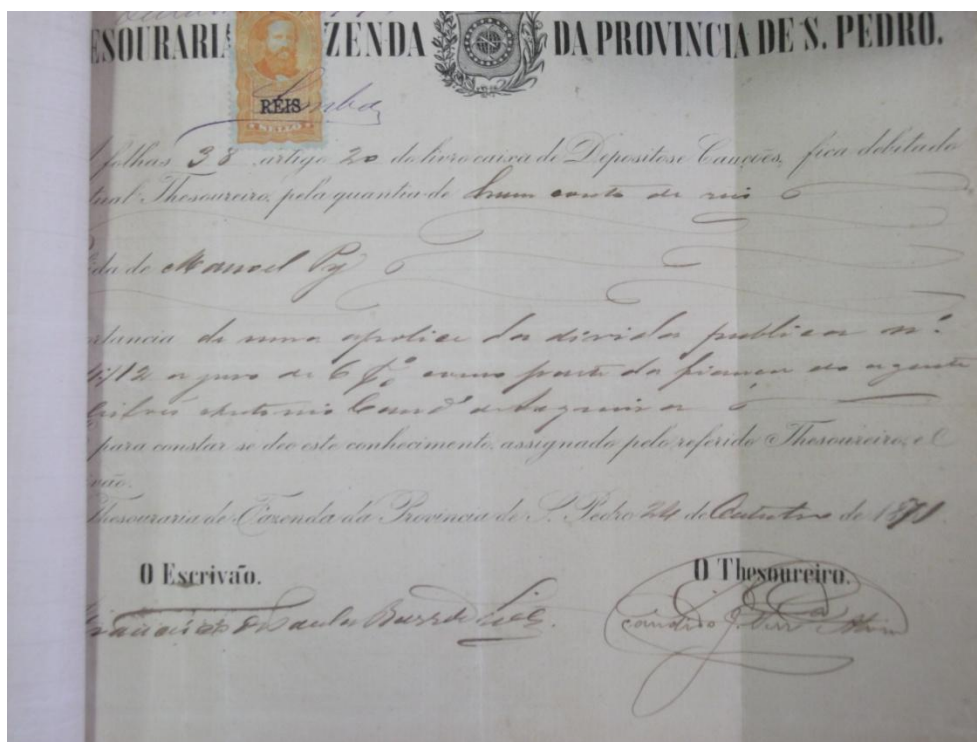 ESOURARIA ZENDA DA PROVINCIA DE S. PEDRO.
RÉIS
folhas 38 artigo 20 do livro caixa de Depositos e Cauções, fica debitado
tual Thesoureiro, pela quantia de hum conto de reis
da de Manoel Py
rtancia de uma apolice da divida publica nº
12 a juro de 6 % como parte da fiança do agente
Antonio Candº de
para constar se deo este conhecimento, assignado pelo referido Thesoureiro, e
vão.
Thesouraria de Fazenda da Provincia de S. Pedro 24 de Outubro de 1871
O Escrivão. O Thesoureiro.
Francisco de Paula
Candido